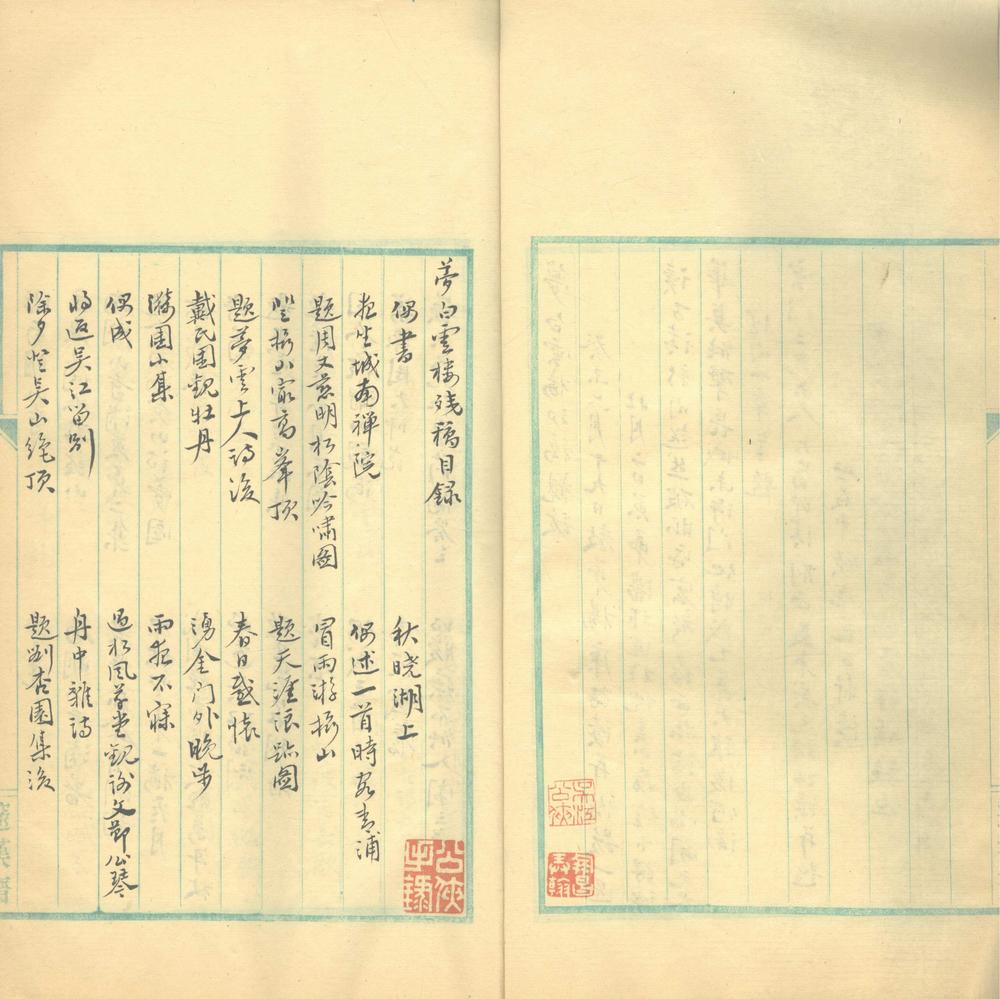 夢白雲樓残稿目錄
偶書
秋曉湖上
夜坐城南禅院
偶述一首時客青浦
題周文明松陰吟嘯圖
冒雨游山
登山最高峯頂
題天涯浪跡圖
題夢雲上人詩後
春日感懷
戴氏園觀牡丹
湧金門外晚步
漪園小集
雨夜不寐
偶成
過松風草堂觀謝文節公琴
將返吳江留別
舟中雜詩
除夕登吳山絕頂
題劉杏園集後
公俠手
吳江公俠